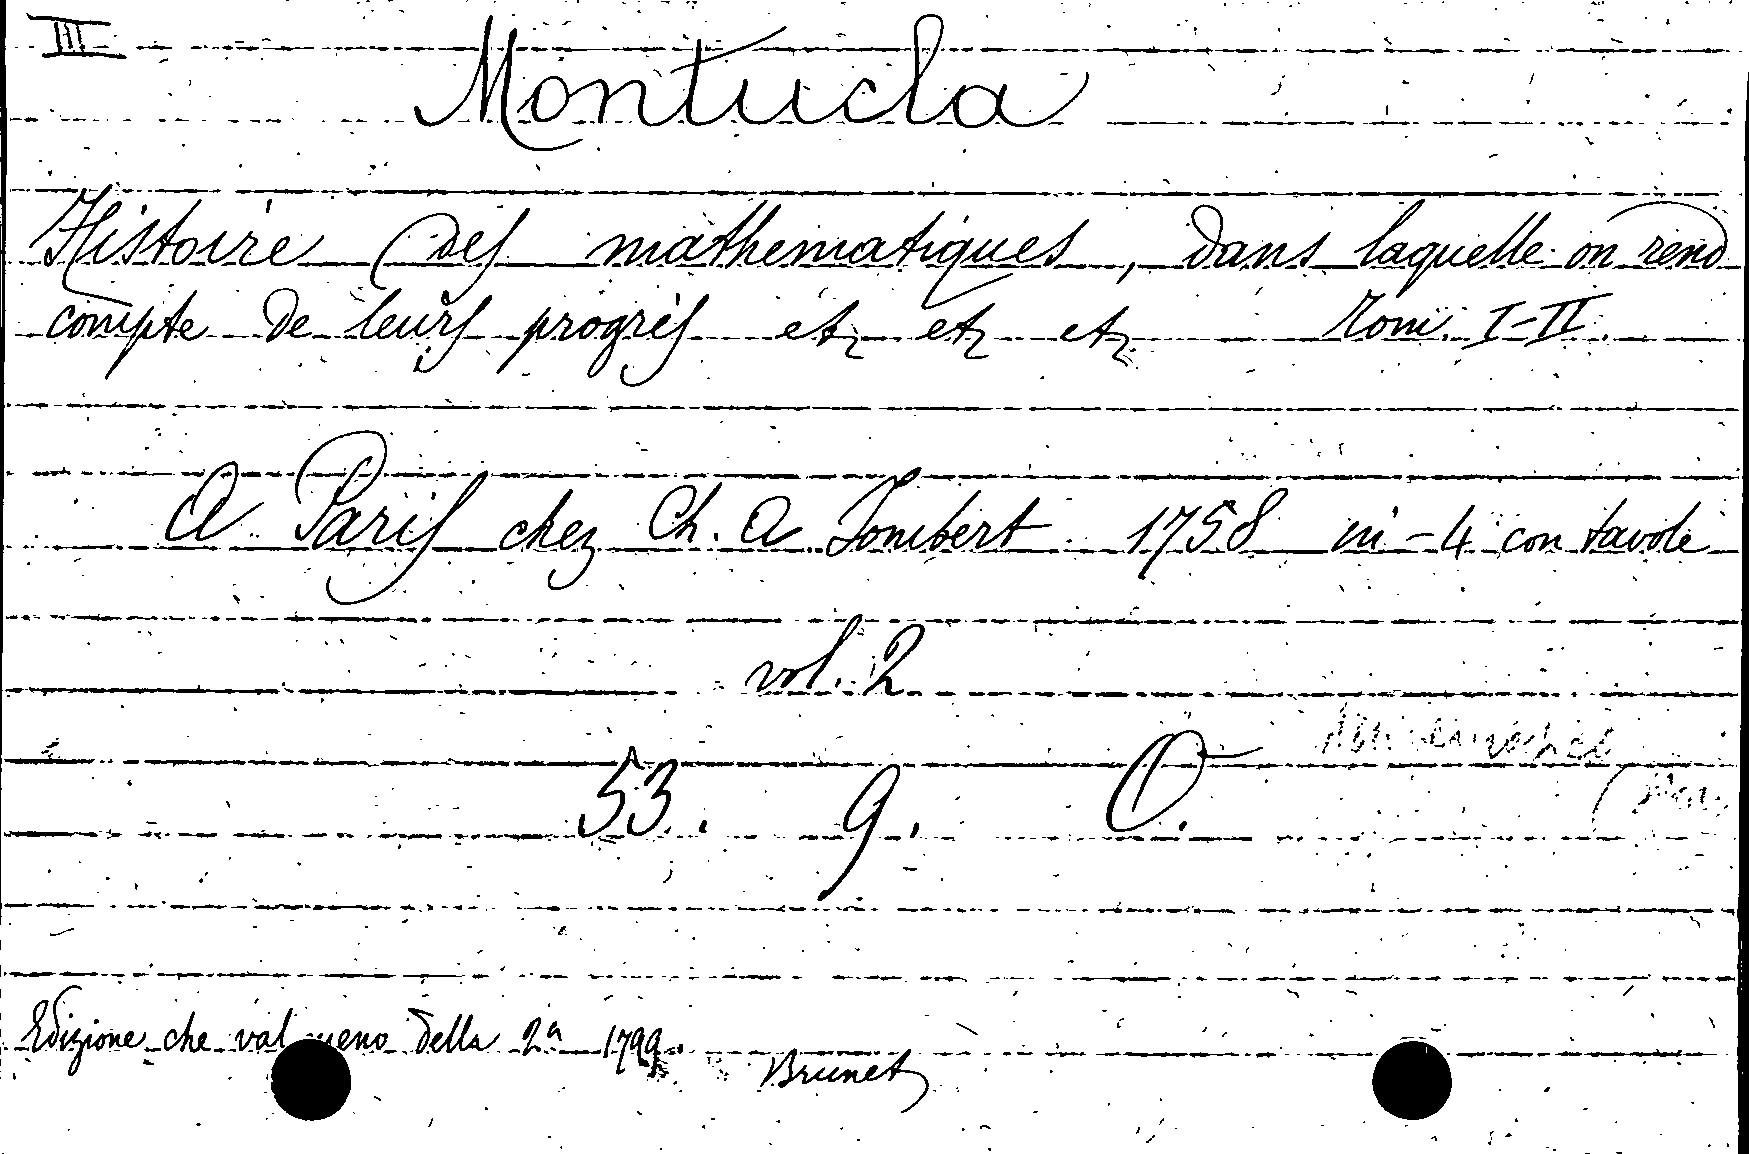 III
Montucla
Histoire des mathematiques, dans laquelle on rend
compte de leurs progrès etz etz etz Tom. I-II.
A Paris chez Ch. A Jombert 1758 in-4 con tavole
vol. 2
53. 9. O.
Edizione che val meno della 2ª 1799.
Brunet